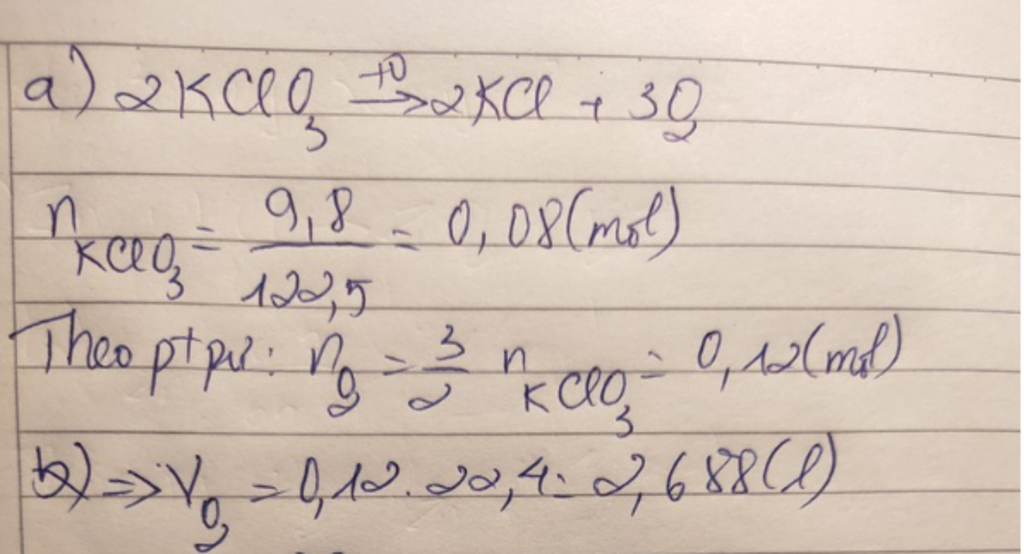 a) 2KClO₃ →(t⁰) 2KCl + 3O₂
n KClO₃ = 9,8 / 122,5 = 0,08 (mol)
Theo ptpư: n O₂ = 3/2 n KClO₃ = 0,12 (mol)
b) => V O₂ = 0,12 . 22,4 = 2,688 (l)